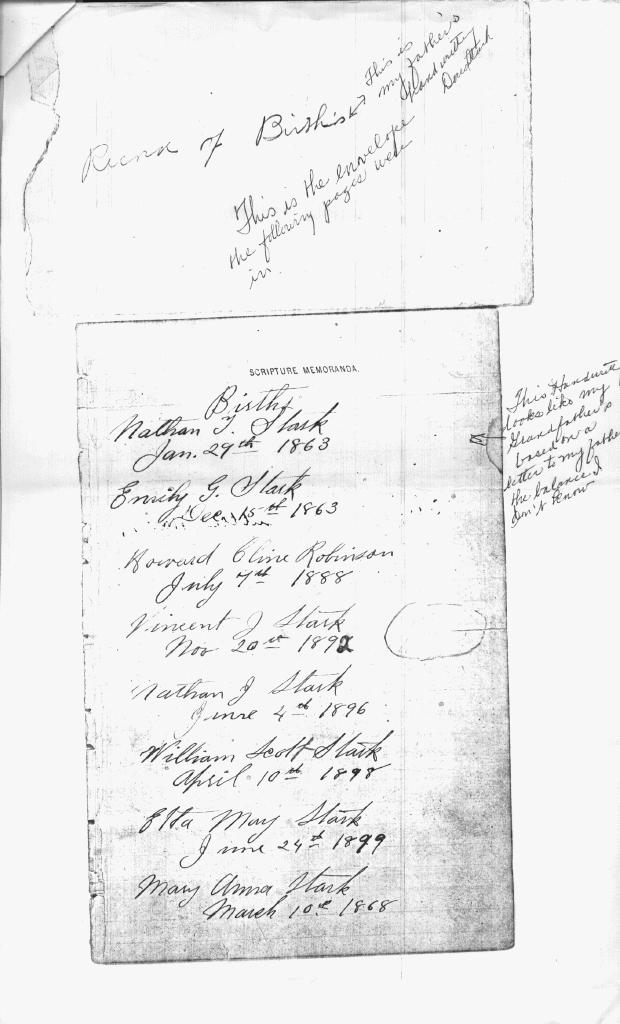 Record of Births
This is
my father's
Handwriting
This is the envelope
the following pages were
in.
SCRIPTURE MEMORANDA.
Births
Nathan T. Stark
Jan. 29th 1863
Emily G. Stark
Dec 15th 1863
Howard Cline Robinson
July 7th 1888
Vincent J Stark
Nov 20th 1892
Nathan J Stark
June 4th 1896
William Scott Stark
April 10th 1898
Etta May Stark
June 24th 1899
Mary Anna Stark
March 10th 1868
This Handwrit
looks like my
Grandfather's
based on a
letter to my father
the balance I
don't know